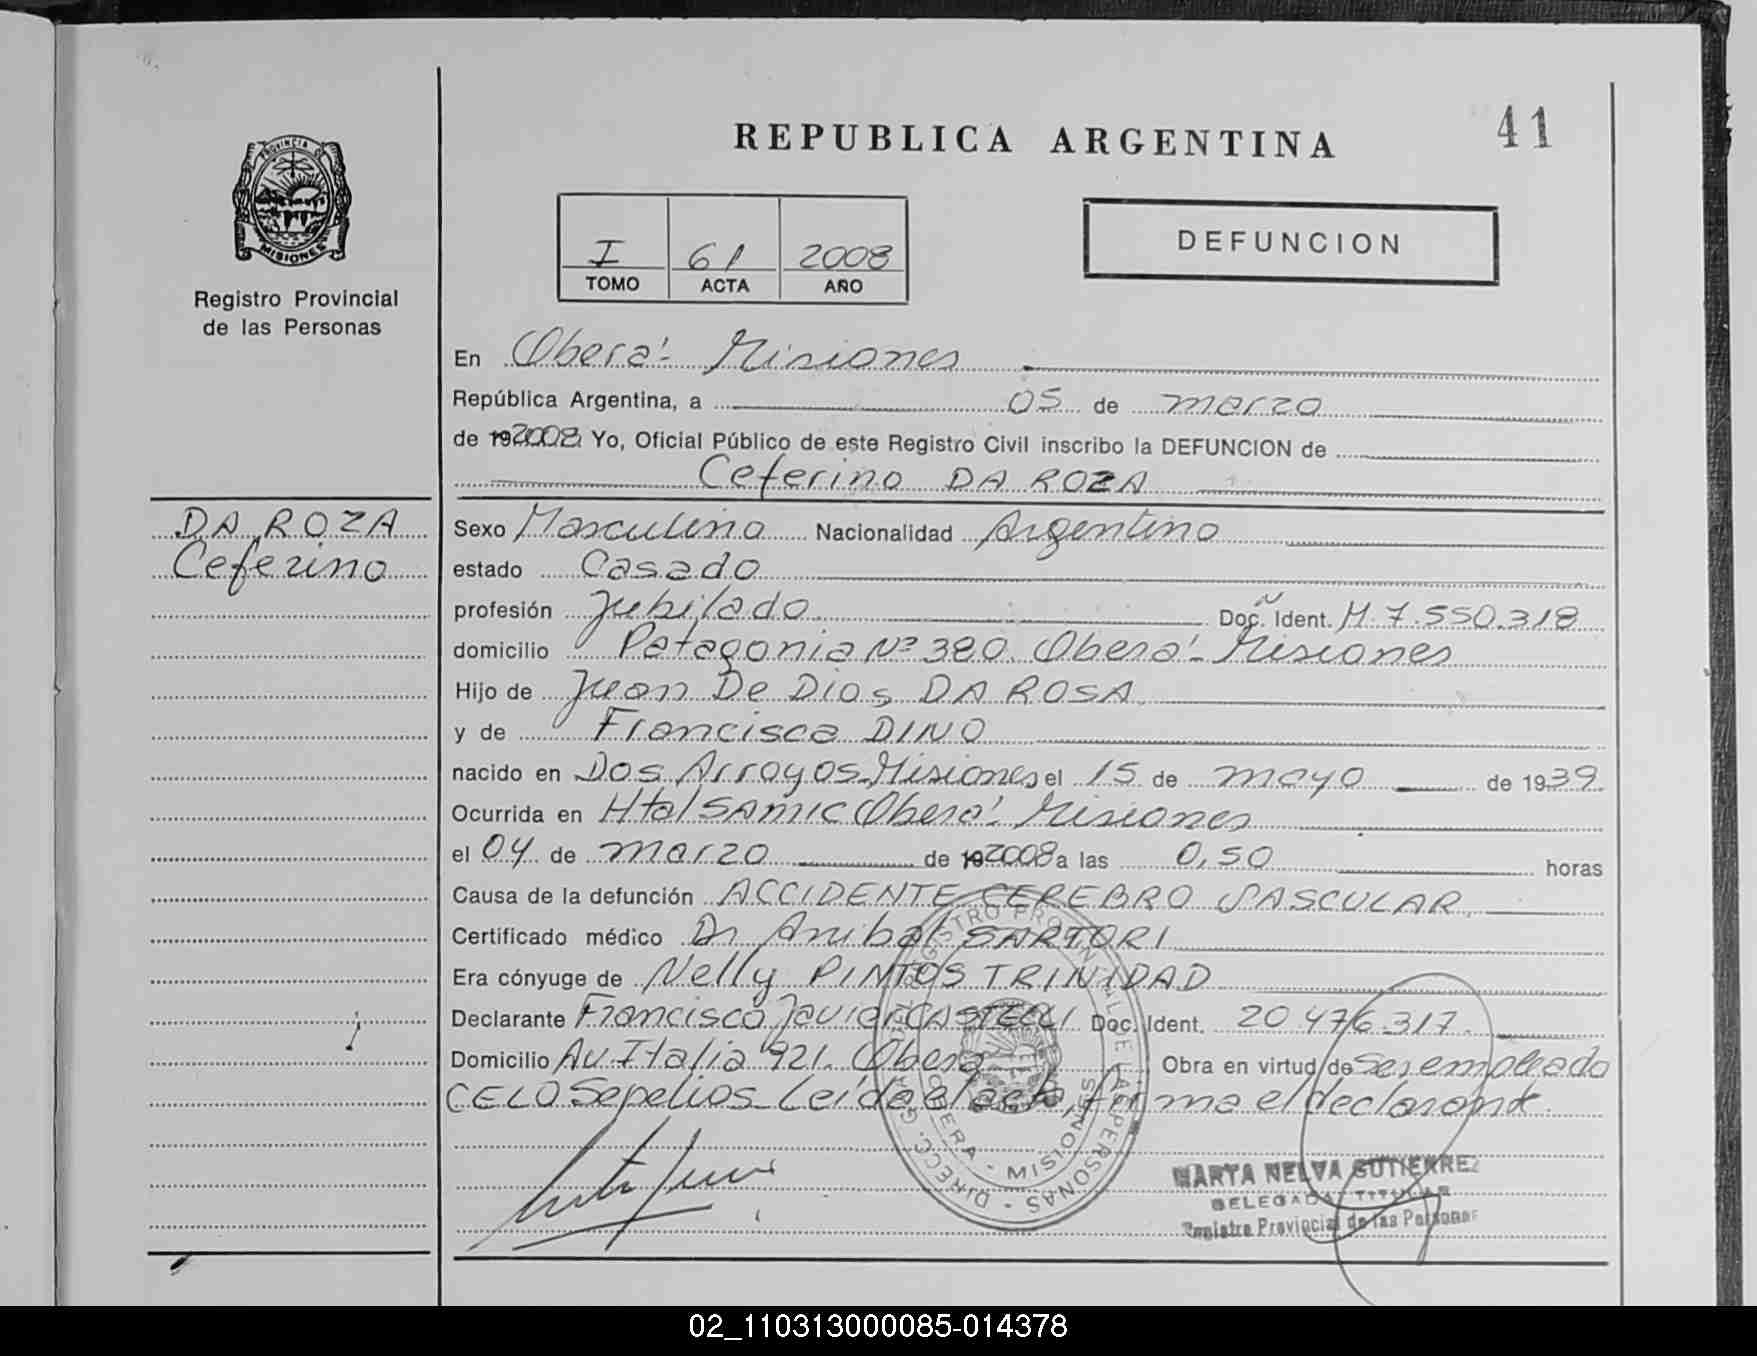 41
REPUBLICA ARGENTINA
PROVINCIA DE
MISIONES
Registro Provincial
de las Personas
I 61 2008
TOMO ACTA AÑO
DEFUNCION
En Oberá - Misiones
República Argentina, a 05 de marzo
de 192008 Yo, Oficial Público de este Registro Civil inscribo la DEFUNCION de
Ceferino DA ROZA
DA ROZA
Ceferino
Sexo Masculino Nacionalidad Argentino
estado Casado
profesión Jubilado Doc. Ident. M. 7.550.318
domicilio Patagonia Nº 380 Oberá - Misiones
Hijo de Juan De Dios DA ROSA
y de Francisca DINO
nacido en Dos Arroyos Misiones el 15 de mayo de 1939
Ocurrida en Htal SAMIC Oberá - Misiones
el 04 de marzo de 192008 a las 0,50 horas
Causa de la defunción ACCIDENTE CEREBRO VASCULAR
Certificado médico Dr Anibal SARTORI
Era cónyuge de Nelly PINTOS TRINIDAD
Declarante Francisco Javier Doc. Ident. 20.476.317
Domicilio Av. Italia 921. Oberá Obra en virtud de ser empleado
CELO Sepelios Leída el acta, firma el declarante.
OBERA - MISIONES
MARTA NELVA GUTIERREZ
DELEGADA TITULAR
Registro Provincial de las Personas
02_110313000085-014378